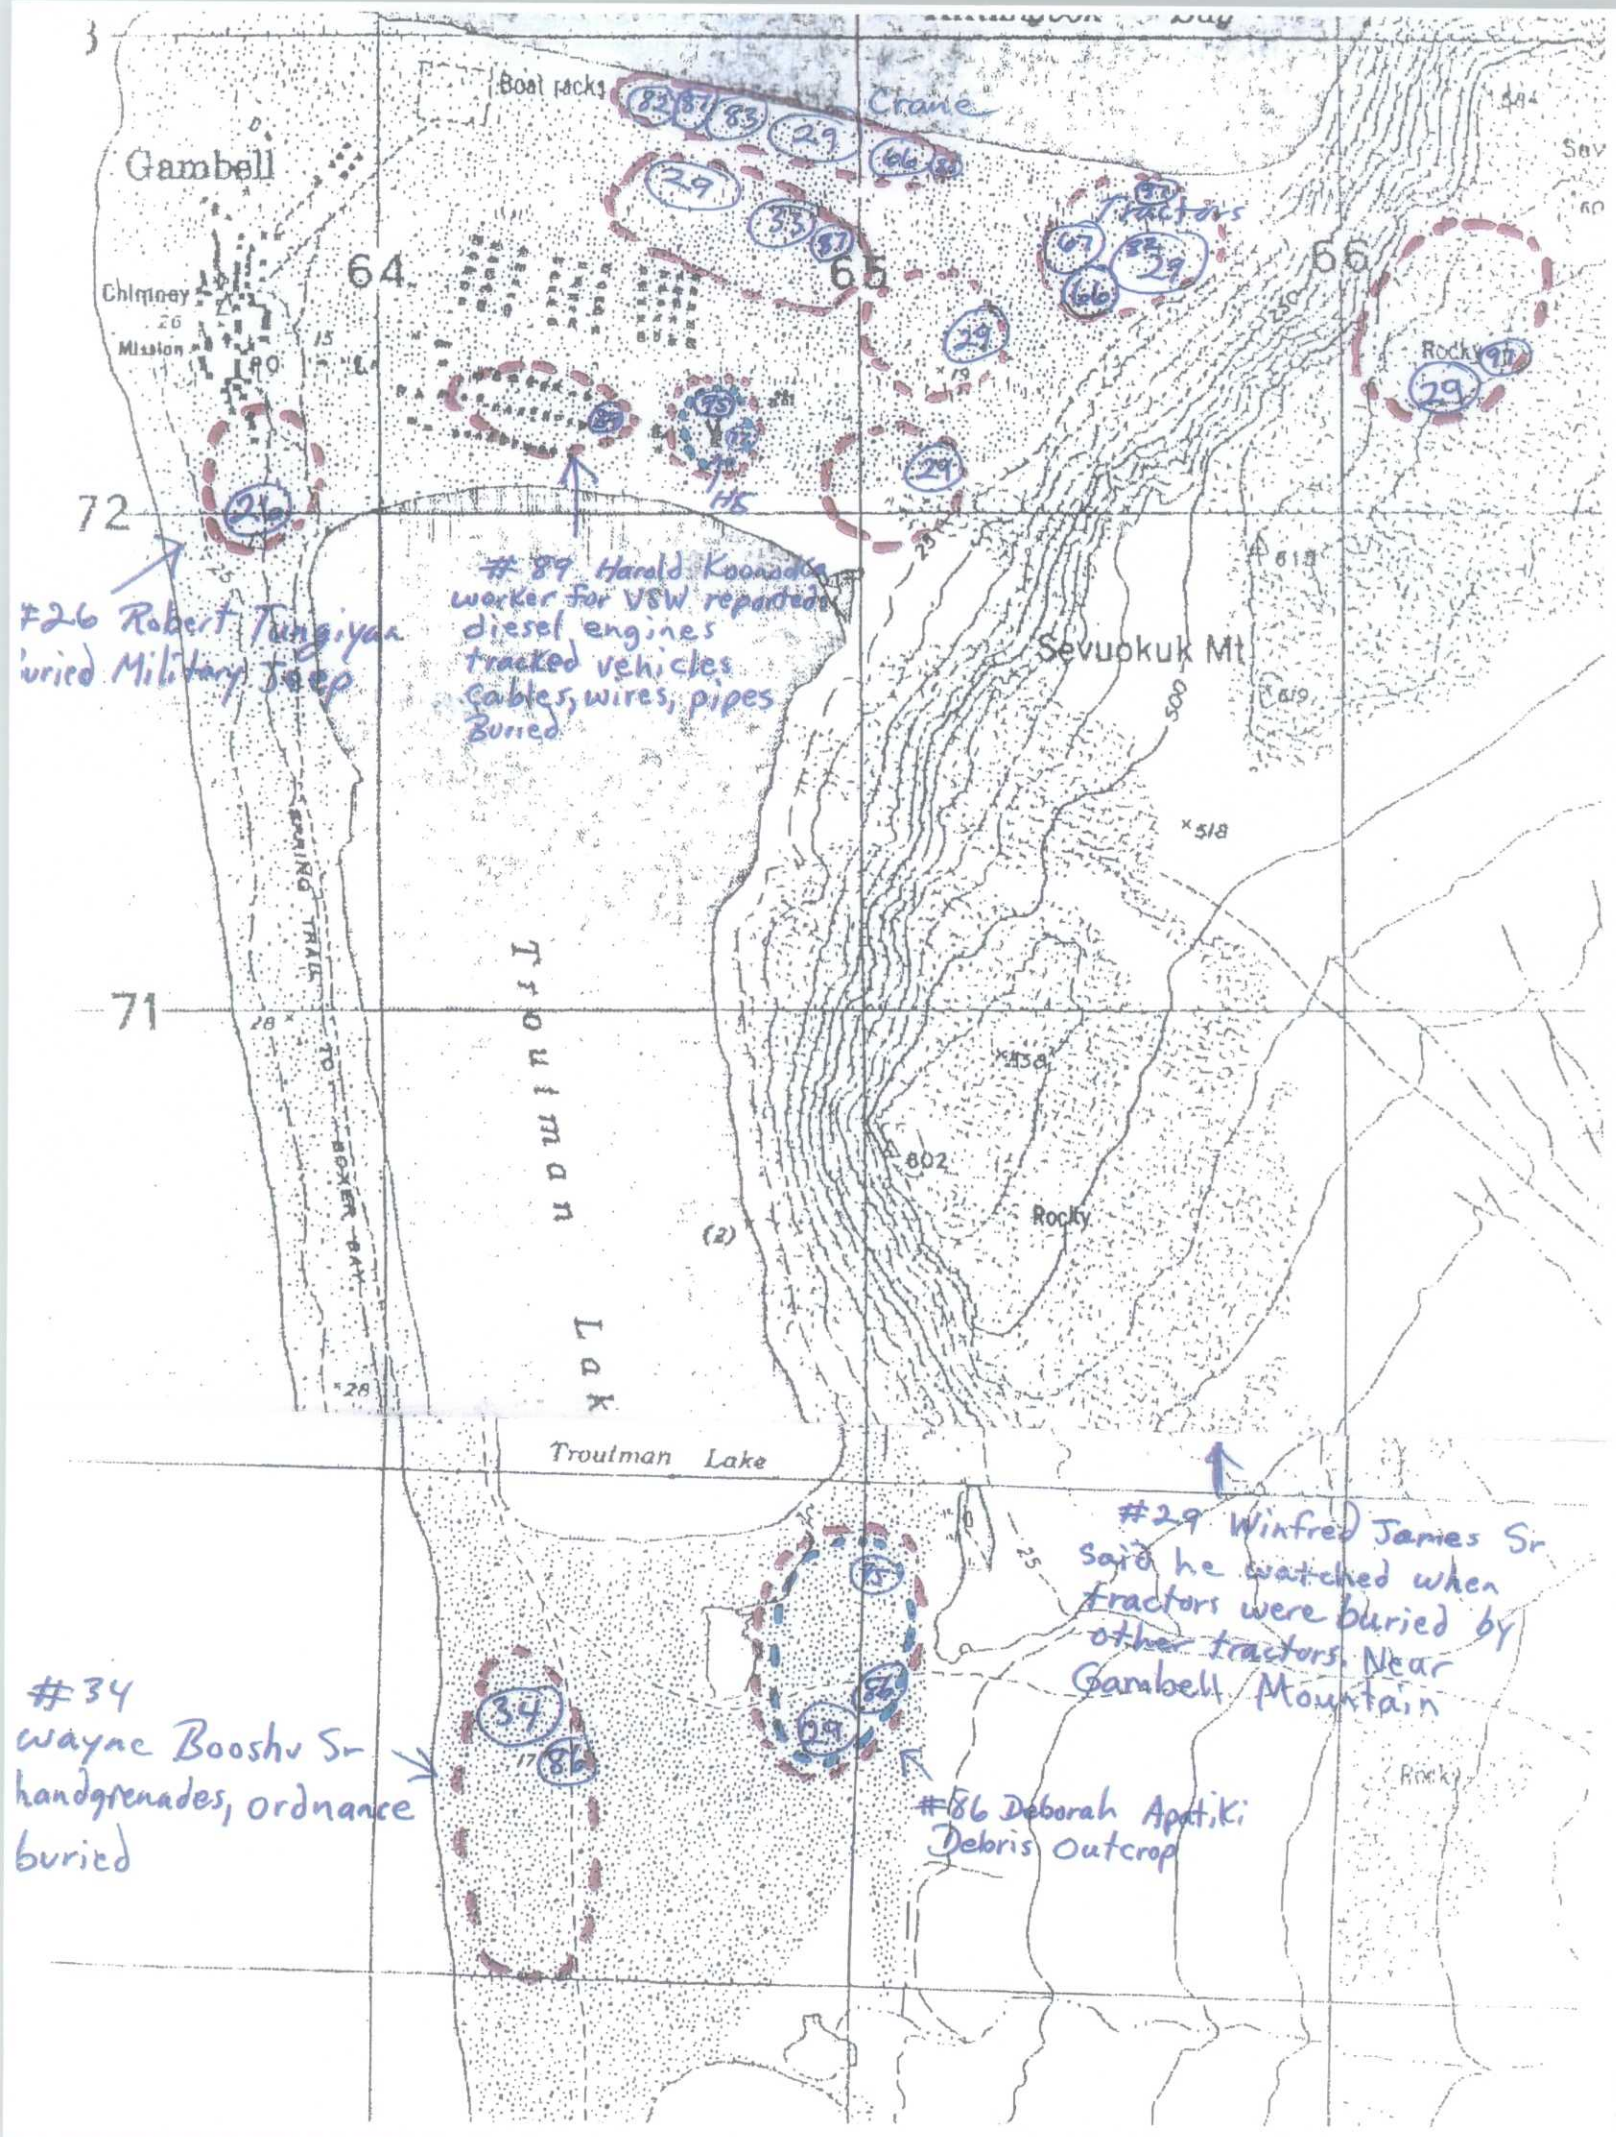 Bay
Boat racks
82 87 83 29 Crane
66
Gambell
29
33 87
87
Tractors
67 82
29
66
64
65
66
250
Chimney
26
Mission
15
PO
29
19
Rocky 97
29
89
95
72
HS
29
26
72
25
615
#26 Robert Tungiyan
uried Military Jeep
#89 Harold
worker for VSW reported
diesel engines
tracked vehicles
cables, wires, pipes
Buried
Sevuokuk Mt
619
500
×518
SPRING TRAIL TO BOXER BAY
71
28×
Troutman Lak
602
Rocky
(2)
×28
Troutman Lake
25
#29 Winfred James Sr
said he watched when
tractors were buried by
other tractors. Near
Gambell Mountain
75
86
29
#34
Wayne Booshu Sr
handgrenades, ordnance
buried
34
17 86
#86 Deborah Apatiki
Debris Outcrop
Rocky